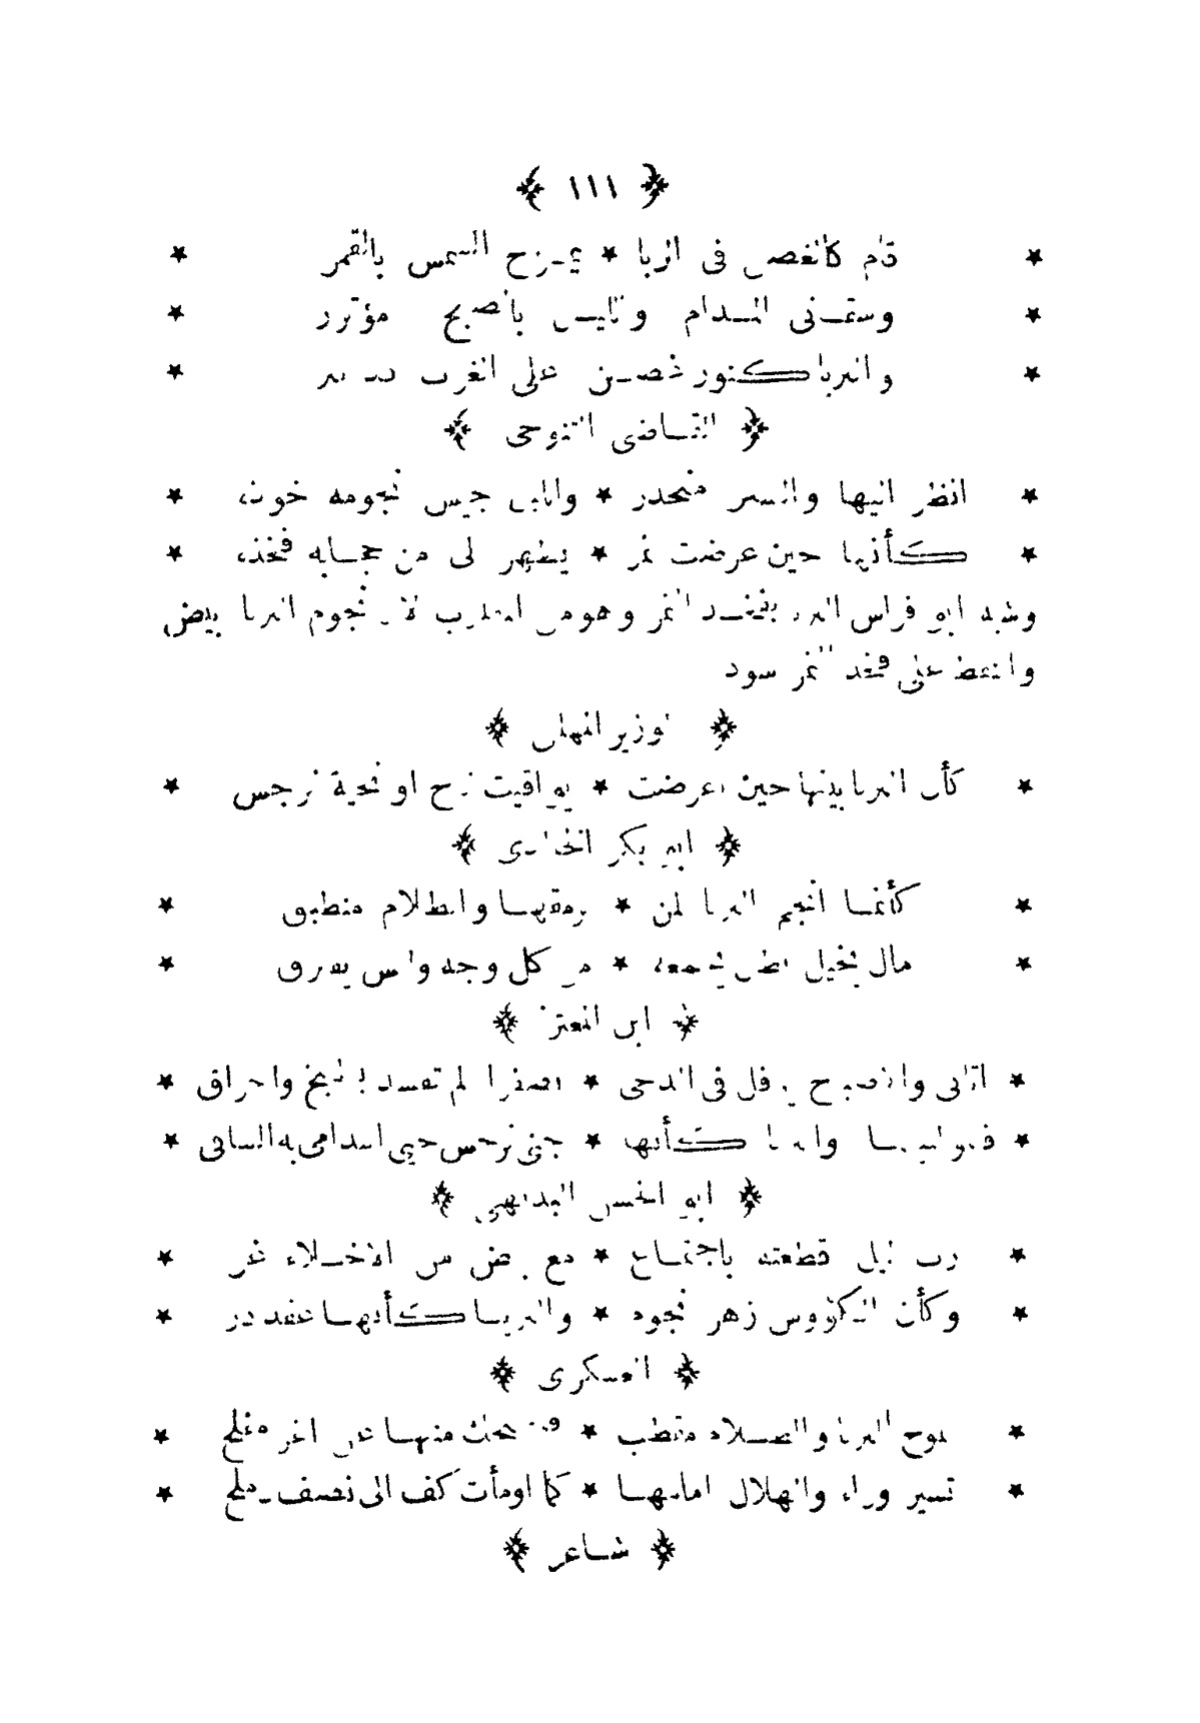 ﴿ ١١١ ﴾
* قام كالغصن فى الربا * يمـزج الشمس بالقمر *
* وسقـانى المـدام والليـل بالصبح مؤتزر *
* والثريا كنور غصـن على الغرب *
﴿ القـاضى التنوخى ﴾
* انظر اليها منحدر * والليل نجومه *
* كأنها حين عرضت * يظهر لى من حجـابه فخذه *
وشبه ابو فراس الثريا بفخـذ النمر وهو لان نجوم الثريا بيض
والنقط على فخذ النمر سود
﴿ الوزير المهلبى ﴾
* كأن الثريا بينها حين اعرضت * يواقيت تاج او تحية نرجس *
﴿ ابو بكر الخالدى ﴾
* كأنمـا انجم الثريا لمن * يرمقهـا والظلام منطبق *
* مال بخيل يظل يجمعه * من كل وجه وليس يفترق *
﴿ ابن المعتز ﴾
* اتانى والصباح يرفل فى الدجى * لم تفسد بطبخ واحراق *
* والثريا كأنها * جنى نرجس حيى الندامى به الساقى *
﴿ ابو الحسن البديهى ﴾
* رب ليل قطعته باجتمـاع * مع بيض من الاخـلاء غر *
* وكأن الكؤوس زهر نجوم * والثريـا كأنهـا عقد در *
﴿ العسكرى ﴾
* تلوح الثريا والظـلام مقطب * منهـا عن اغر مفلج *
* تسير وراء والهلال امامهـا * كما اومأت كف الى نصف دملج *
﴿ شـاعر ﴾